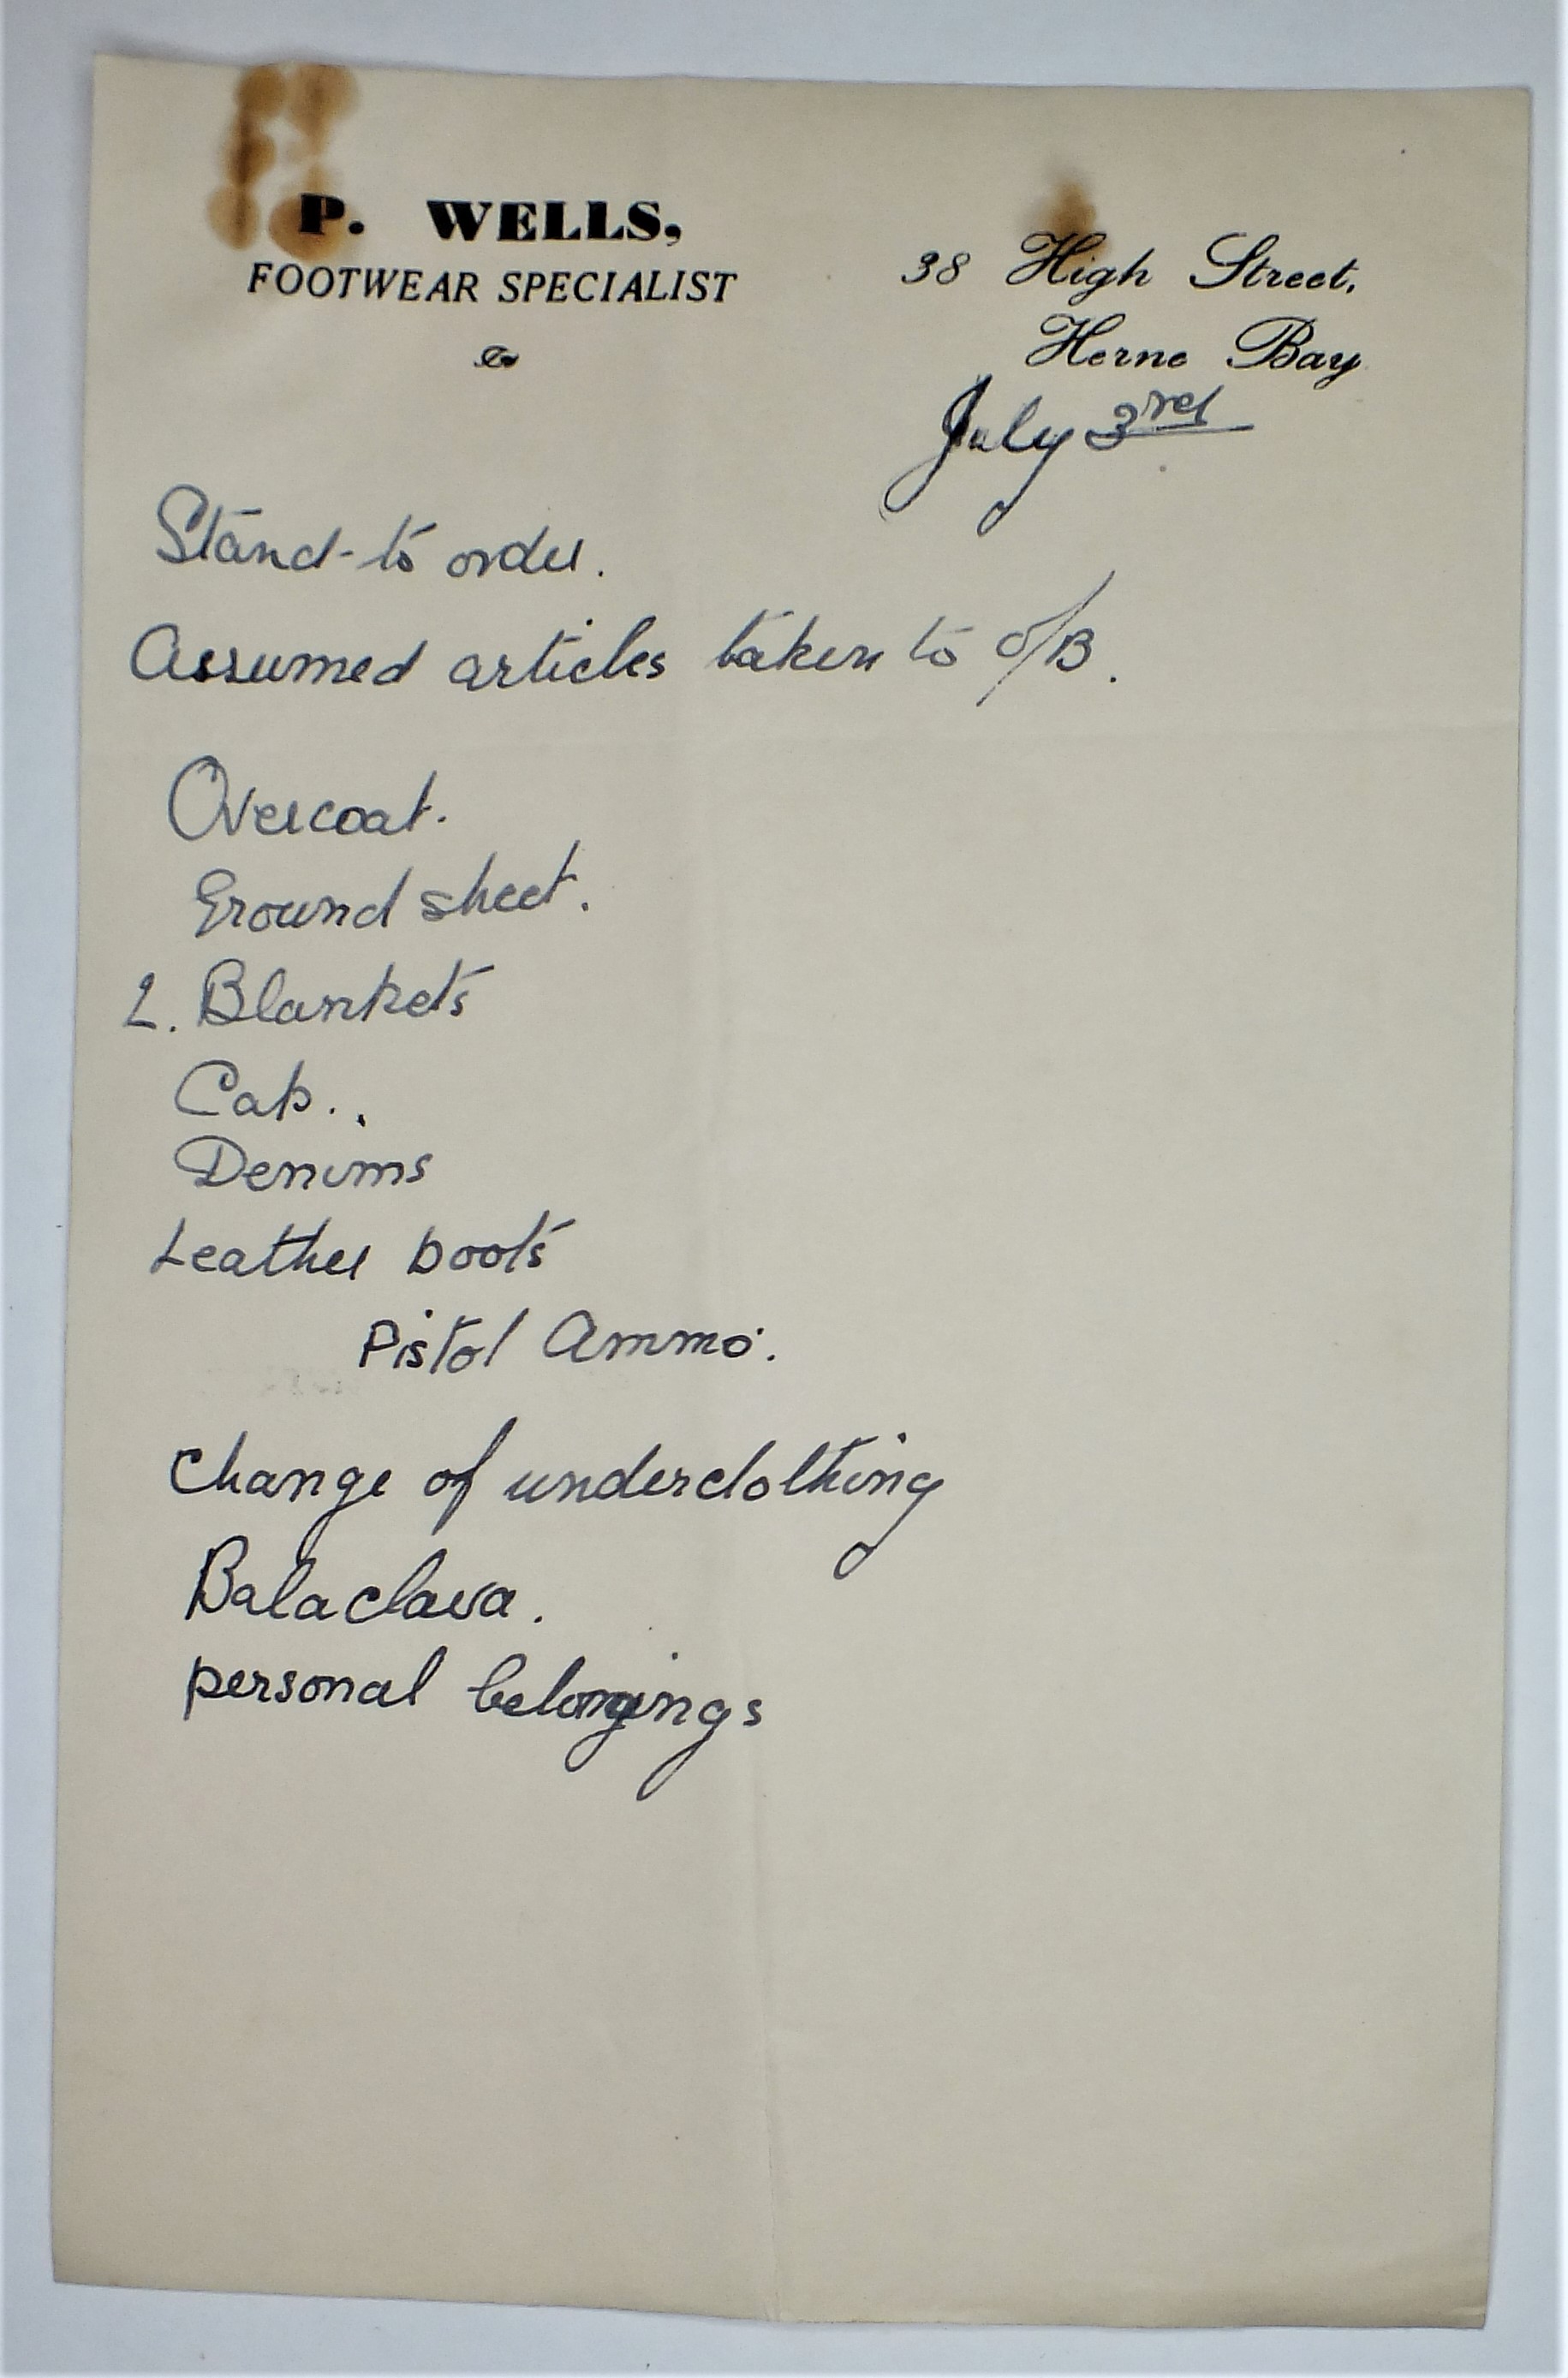 P. WELLS,
FOOTWEAR SPECIALIST
38 High Street,
Herne Bay
July 3rd
Stand-to order.
Assumed articles taken to O/B.
Overcoat.
Ground sheet.
2. Blankets
Cap..
Denims
Leather boots
Pistol Ammo.
Change of underclothing
Balaclava.
personal belongings